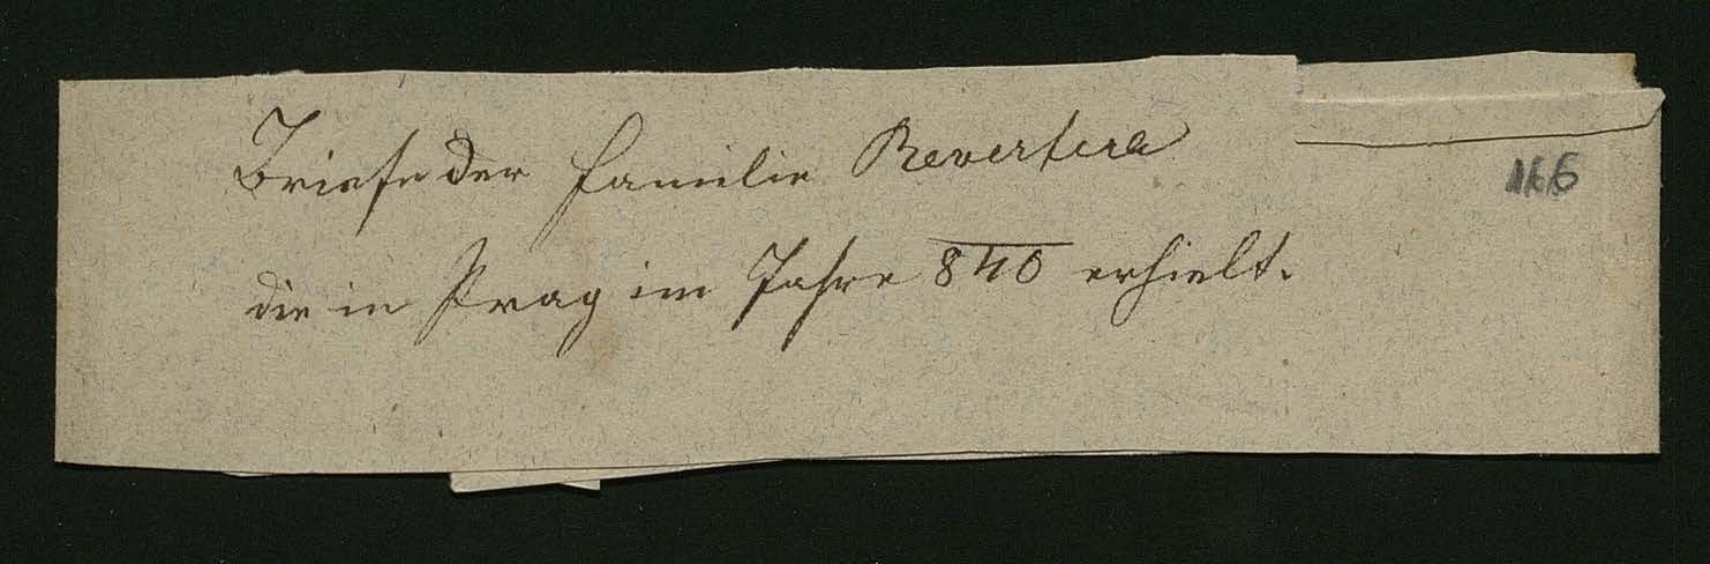 Briefe der Familie Revertera
166
die in Prag im Jahre 840 erhielt.